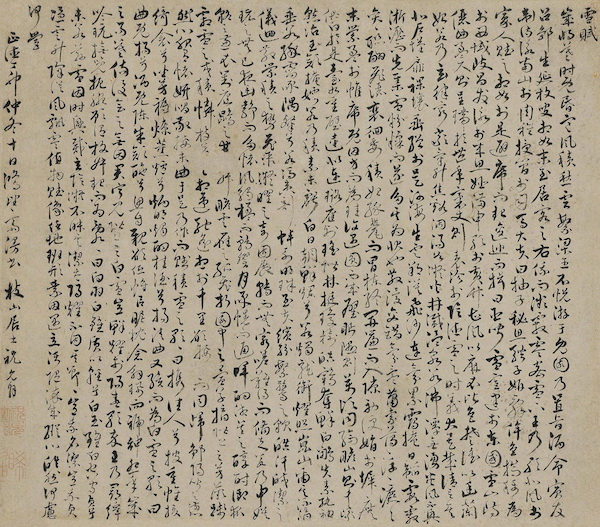 雪賦
歲將暮時既昏寒風積愁雲繁梁王不悅游于兔園乃置旨酒命賓友
召鄒生延枚叟相如末至居客之右俄而微霰零密雪下王乃歌北風於
衛詩詠南山於周雅授簡於司馬大夫曰抽子秘思騁子妍辭侔色揣稱為
寡人賦之相如於是避席而起逡巡而揖曰臣聞雪宮建於東國雪山峙
於西域岐昌發詠於來思姬滿申歌於黃竹曹風以麻衣比色楚謠以幽蘭
儷曲盈尺則呈瑞於豐年袤丈則表沴於陰德雪之時義遠矣哉請言其
始若乃玄律窮嚴氣升焦溪涸湯谷凝火井滅溫泉冰沸潭無湧炎風不興
北戶墐扉裸壤垂繒於是河海生雲朔漠飛沙連氛累靄掩日韜霞霰
淅瀝而先集雪紛糅而遂多其為狀也散漫交錯氛氳蕭索藹藹浮浮瀌瀌
奕奕聯翩飛灑徘徊委積始緣甍而冒棟終開簾而入隙初便娟於墀廡
末縈盈於帷席既因方而為珪亦遇圓而成璧眄隰則萬頃同縞瞻山則千巖
俱白於是臺如重璧逵似連璐庭列瑤階林挺瓊樹皓鶴奪鮮白鷴失素紈袖
慚冶玉顏掩姱若乃積素未虧白日朝鮮爛兮若燭龍銜耀照崑山爾其流滴
垂冰緣霤承隅粲兮若馮夷剖蚌列明珠至夫繽紛繁騖之貌皓汗皦潔之
儀迴散縈積之勢飛聚凝曜之奇固展轉而無窮嗟難得而備知若乃申娛
玩之無已夜幽靜而多懷風觸楹而轉響月承幌而通暉酌湘吳之醇酎御狐
貉之兼衣對庭鵾之雙舞瞻雲雁之孤飛折園中之萱草摘階上之芳薇踐
霜雪之交積憐枝葉之相違馳遙思於千里願接手而同歸鄒陽聞之懣
然心服有懷妍唱敬接末曲於是乃作而賦積雪之歌歌曰攜佳人兮披重幄援
綺衾兮坐芳縟燎薰爐兮炳明燭酌桂酒兮揚清曲又續而為白雪之歌歌曰
曲既揚兮酒既陳朱顏酡兮思自親願低帷以昵枕念解珮而褫紳怨年歲
之易暮傷後會之無因君寧見階上之白雪豈鮮耀於陽春歌卒王乃尋繹
吟玩撫覽扼腕顧謂枚叔起而為亂亂曰白羽雖白質以輕兮白玉雖白空守貞兮
未若茲雪因時興滅玄陰凝不昧其潔太陽曜不固其節節豈我名潔豈我貞
憑雲升降從風飄零值物賦像任地班形素因遇立污隨染成縱心皓然何慮
何營
正德 仲冬十日 枝山居士祝允明